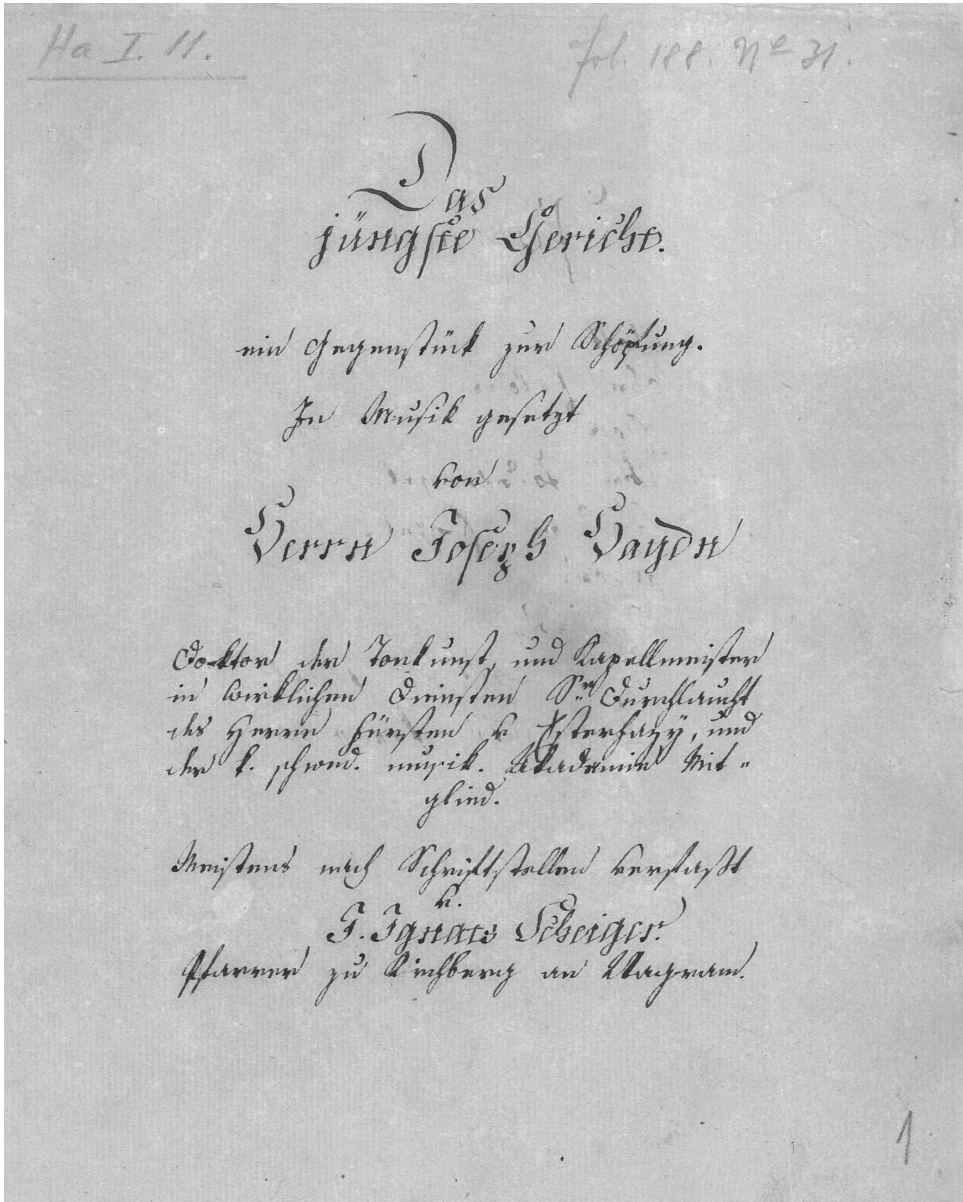 Ha I. 11.
fol. 188. No 31.
Das
jüngste Gericht.
ein Gegenstück zur Schöpfung.
In Musik gesetzt
von
Herrn Joseph Haydn
Doktor der Tonkunst, und Kapellmeister
in wirklichen Diensten Sr Durchlaucht
des Herrn Fürsten v Esterhazy, und
der k. schwed. musik. Akademie Mit-
glied.
Meistens nach Schriftstellen verfaßt
v.
J. Ignatz Scheiger.
Pfarrer zu Kirchberg am Wagram.
1